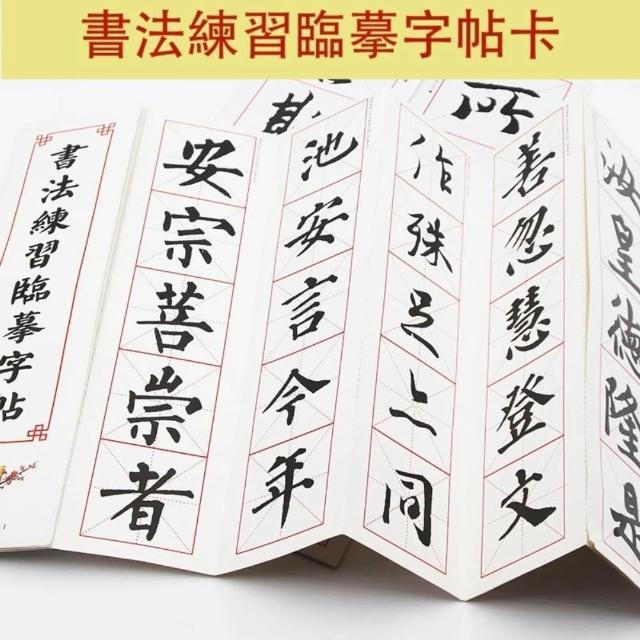 書法練習臨摹字帖卡
書法練習臨摹字帖
安宗菩崇者
池安言今年
作殊足同
善忽慧登文
皇德隆是
所